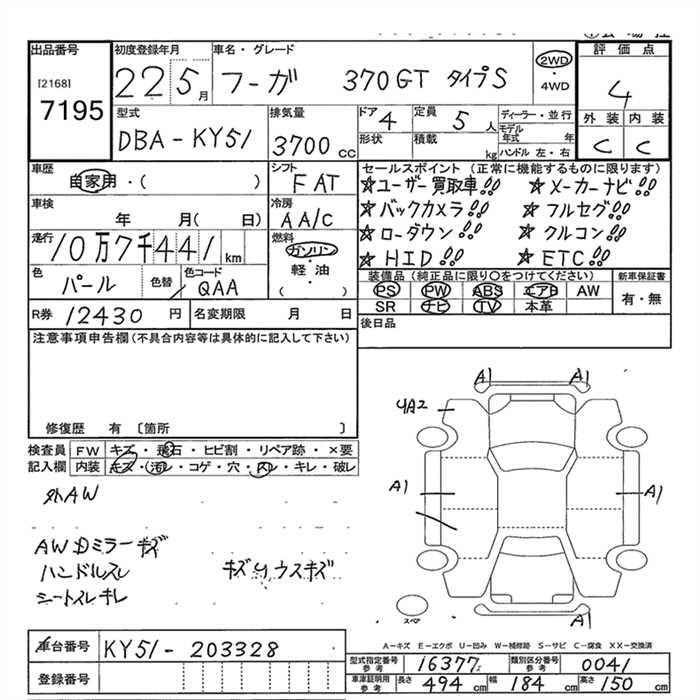 出品番号
[2168]
7195
初度登録年月
22 5月
車名・グレード
フーガ 370GT タイプS
2WD
・
4WD
評価点
4
外装 内装
C C
型式
DBA-KY51
排気量
3700 CC
ドア 4
形状
定員 5人
積載 kg
ディーラー・並行
モデル年式 年
ハンドル 左・右
車歴
自家用・( )
シフト
FAT
車検
年 月( 日)
冷房
AA/C
走行
10万7千441km
燃料
ガソリン
・
軽油
( )
色
パール
色替
色コード
QAA
セールスポイント (正常に機能するものに限ります)
☆ユーザー買取車!! ☆メーカーナビ!!
☆バックカメラ!! ☆フルセグ!!
☆ローダウン!! ☆クルコン!!
☆HID!! ☆ETC!!
装備品 (純正品に限り○をつけてください)
PS PW ABS エアB AW
SR ナビ TV 本革
新車保証書
有・無
R券 12430 円
名変期限 月 日
後日品
注意事項申告欄(不具合内容等は具体的に記入して下さい)
修復歴 有 〔箇所 〕
検査員
記入欄
FW キズ・飛石・ヒビ割・リペア跡・×要
内装 キズ・汚レ・コゲ・穴・スレ・キレ・破レ
外AW
AWDミラーキズ
ハンドルスレ
シートスレキレ
キズソウスキズ
A1
A1
4A2
A1
A1
A1
スペア
A-キズ E-エクボ U-凹み W-補修跡 S-サビ C-腐食 XX-交換済
車台番号 KY51-203328
登録番号
型式指定番号 参考 16377
類別区分番号 参考 0041
車庫証明用 参考 長さ 494 cm 幅 184 cm 高さ 150 cm